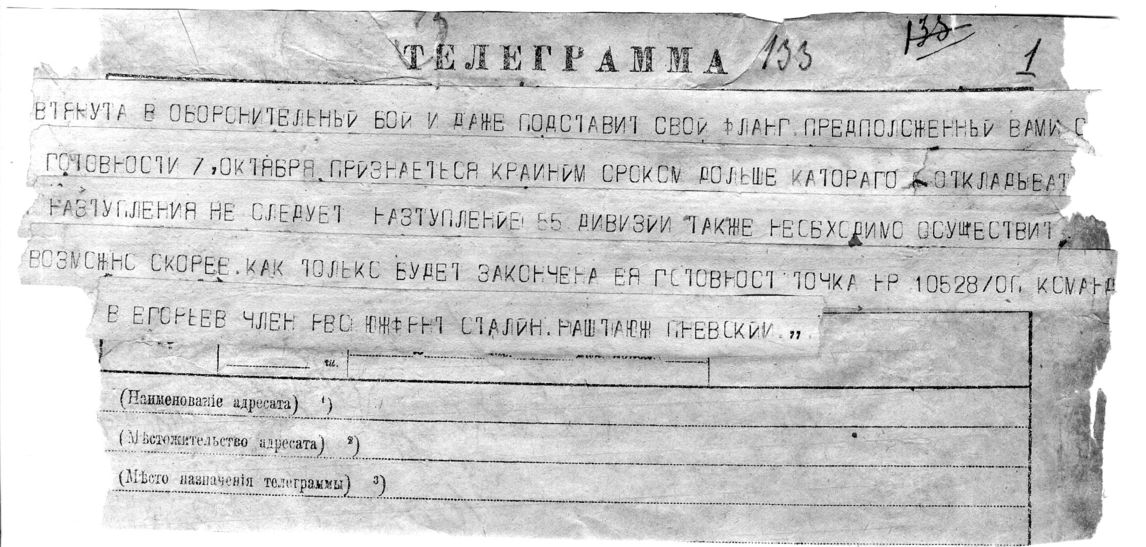 133
ТЕЛЕГРАММА 133 1
ВТЯНУТА В ОБОРОНИТЕЛЬНЫЙ БОЙ И ДАЖЕ ПОДСТАВИТ СВОЙ ФЛАНГ. ПРЕДПОЛОЖЕННЫЙ ВАМИ С
ГОТОВНОСТИ 7, ОКТЯБРЯ ПРИЗНАЕТЬСЯ КРАИНИМ СРОКОМ ДОЛЬШЕ КАТОРАГО ОТКЛАДЫВАТ
НАЗТУПЛЕНИЯ НЕ СЛЕДУЕТ НАЗТУПЛЕНИЕ 55 ДИВИЗИИ ТАКЖЕ НЕОБХОДИМО ОСУЩЕСТВИТ
ВОЗМОЖНО СКОРЕЕ. КАК ТОЛЬКО БУДЕТ ЗАКОНЧЕНА ЕЯ ГОТОВНОСТ ТОЧКА НР 10528/ОП КОМАНД
В ЕГОРЬЕВ ЧЛЕН РВС ЮЖФРНТ СТАЛИН. НАШТАЮЖ ПНЕВСКИЙ. „
ч.
(Наименованіе адресата) ¹)
(Мѣстожительство адресата) ²)
(Мѣсто назначенія телеграммы) ³)